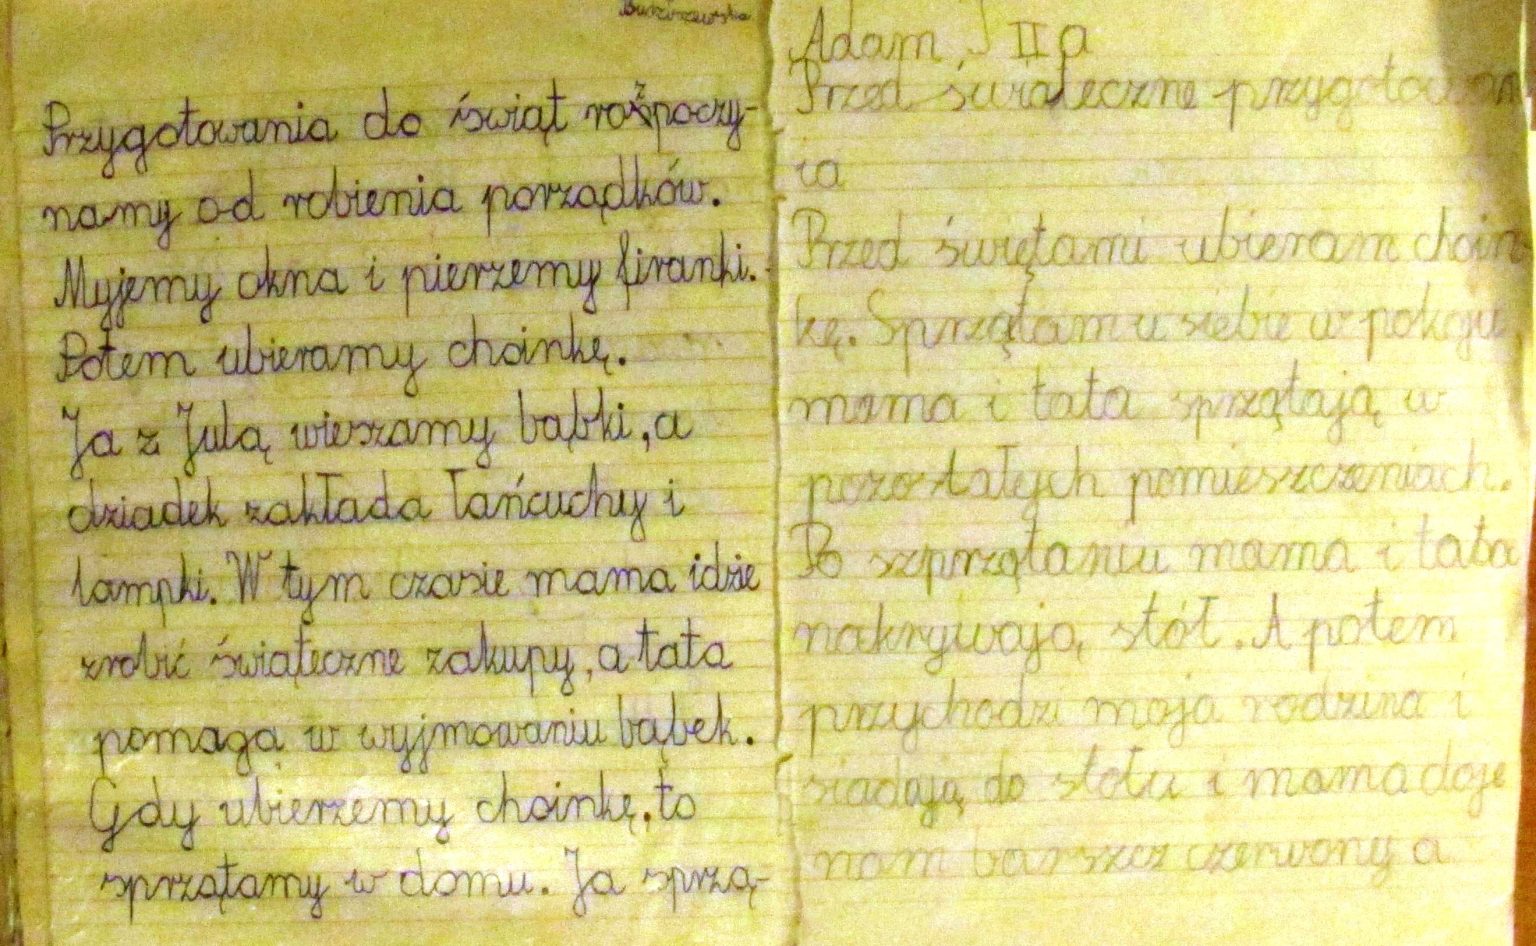 Buszkszewska
Przygotowania do świąt rozpoczy-
namy od robienia porządków.
Myjemy okna i pierzemy firanki.
Potem ubieramy choinkę.
Ja z Julą wieszamy bąbki, a
dziadek zakłada łańcuchy i
lampki. W tym czasie mama idzie
zrobić świąteczne zakupy, a tata
pomaga w wyjmowaniu bąbek.
Gdy ubierzemy choinkę, to
sprzątamy w domu. Ja sprzą-
Adam J II a
Przed świąteczne przygotowan
ia
Przed świętami ubieram choin
kę. Sprzątam u siebie w pokoju
mama i tata sprzątają w
pozostałych pomieszczeniach.
Po szprzątaniu mama i tata
nakrywają stół. A potem
przychodzi moja rodzina i
siadają do stołu i mama daje
nam barszcz czerwony a